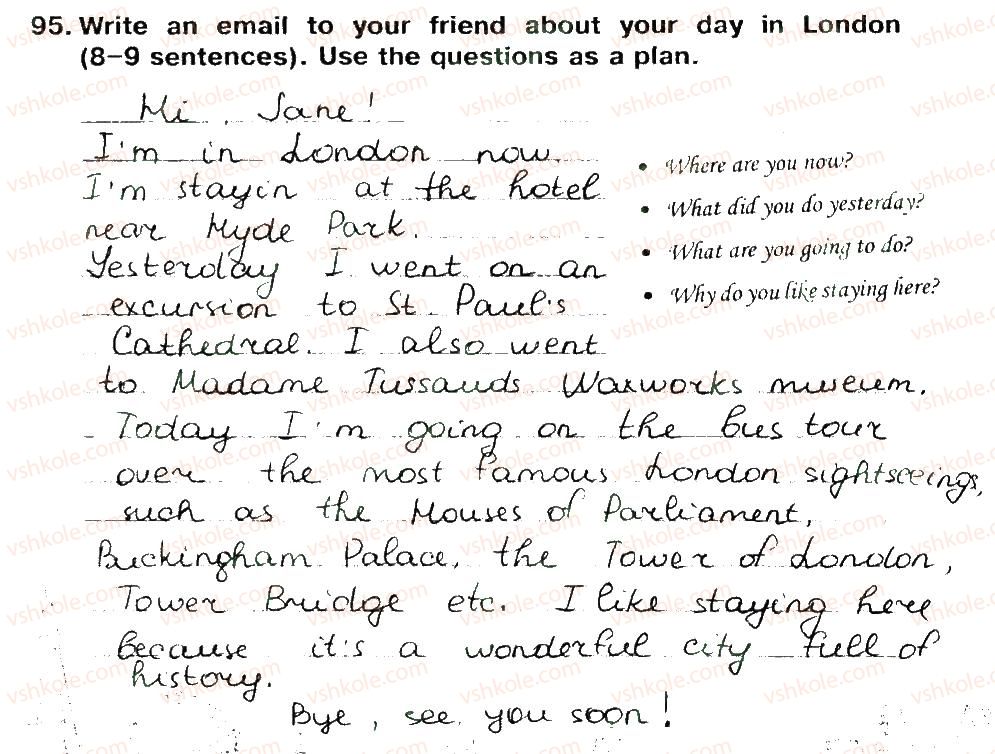 95. Write an email to your friend about your day in London
(8–9 sentences). Use the questions as a plan.
Hi, Jane!
I'm in London now.
I'm stayin at the hotel
near Hyde Park.
Yesterday I went on an
excursion to St. Paul's
Cathedral. I also went
to Madame Tussauds Waxworks museum.
Today I'm going on the bus tour
over the most famous London sightseeings,
such as the Houses of Parliament,
Buckingham Palace, the Tower of London,
Tower Bridge etc. I like staying here
because it's a wonderful city full of
history.
Bye, see you soon!
• Where are you now?
• What did you do yesterday?
• What are you going to do?
• Why do you like staying here?
vshkole.com